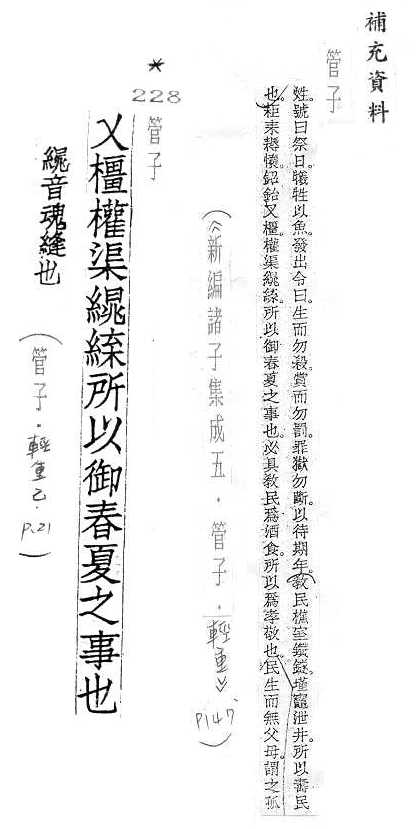 補充資料
管子
姓號曰祭日犧牲以魚。發出令曰。生而勿殺。賞而勿罰。罪獄勿斷。以待期年。敎民樵室鑽鐩。墐竈泄井。所以壽民
也。耟耒耨懷鉊鉿乂橿權渠繉緤。所以御春夏之事也。必具敎民爲酒食。所以爲孝敬也。民生而無父母。謂之孤
(《新編諸子集成五．管子．輕重》P147)
228
管子
乂橿權渠繉緤所以御春夏之事也
繉音魂縫也
(管子．輕重己．P.21)